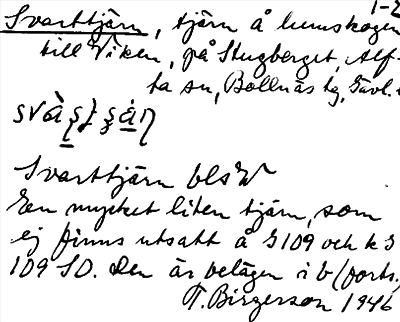 1-2
Svarttjärn, tjärn å hemskogen
till Viken, på Stugberget, Alf-
ta sn, Bollnäs tg, Gävl.
Svarttjärn bls W
En mycket liten tjärn, som
ej finns utsatt å G109 och k S
109 SO. Den är belägen i b (forts.)
T. Birgerson 1946